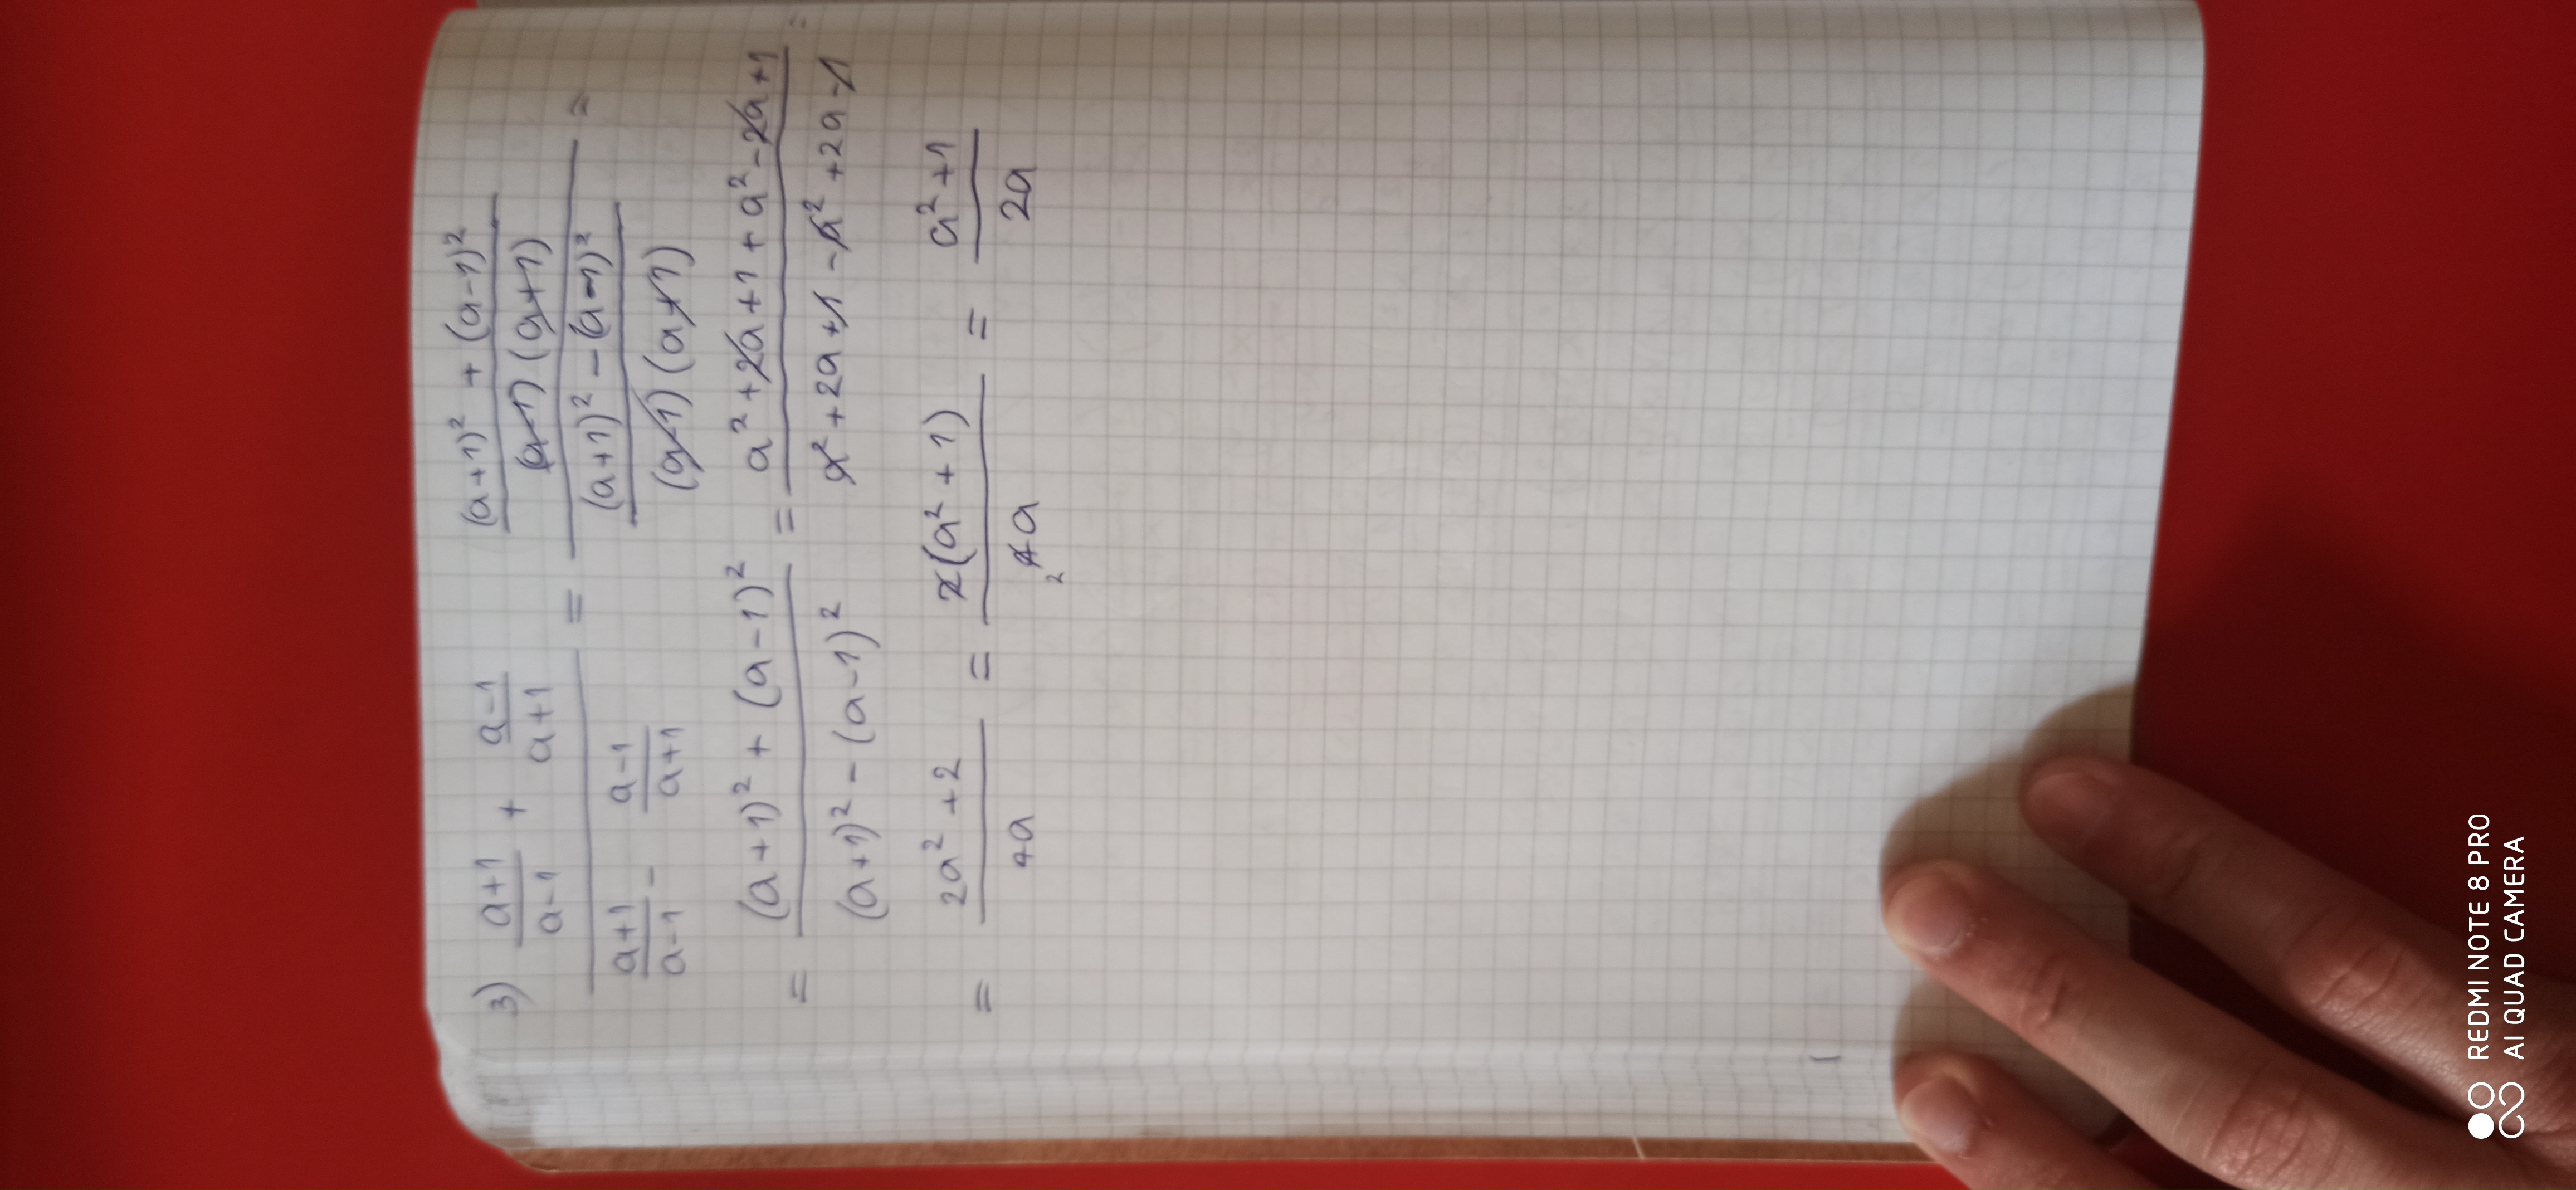 3) \frac{\frac{a+1}{a-1} + \frac{a-1}{a+1}}{\frac{a+1}{a-1} - \frac{a-1}{a+1}} = \frac{\frac{(a+1)^2 + (a-1)^2}{(a-1)(a+1)}}{\frac{(a+1)^2 - (a-1)^2}{(a-1)(a+1)}} =
= \frac{(a+1)^2 + (a-1)^2}{(a+1)^2 - (a-1)^2} = \frac{a^2+2a+1+a^2-2a+1}{a^2+2a+1-a^2+2a-1} =
= \frac{2a^2+2}{4a} = \frac{2(a^2+1)}{4a_2} = \frac{a^2+1}{2a}
REDMI NOTE 8 PRO
AI QUAD CAMERA